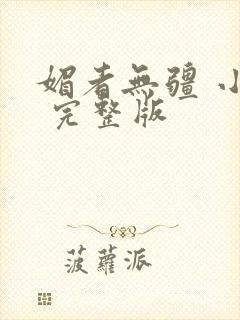 媚者無疆 小
完整版
菠蘿派